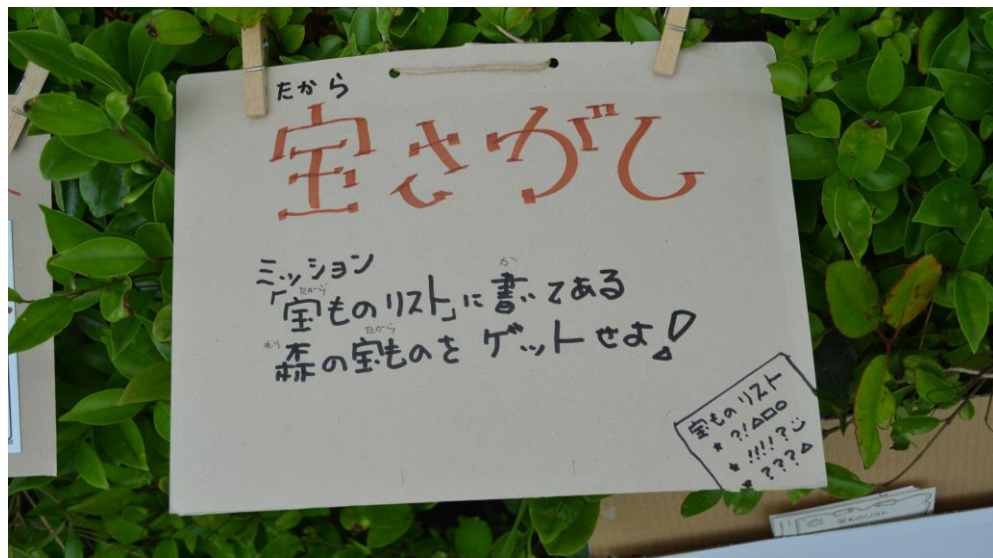 たから
宝さがし
ミッション
たから か
「宝ものリスト」に書いてある
もり たから
森の宝ものをゲットせよ!
宝ものリスト
★ ?!△□○
★ !!!!?
★ ???△